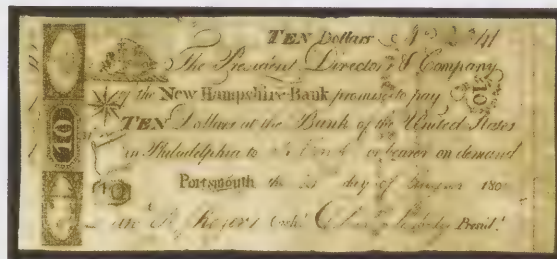 TEN Dollars No
The President Directors & Company
of the New Hampshire Bank promise to pay
TEN Dollars at the Bank of the United States
in Philadelphia to or bearer on demand
Portsmouth the day of 180
Cashr. Presidt.
10
10
10